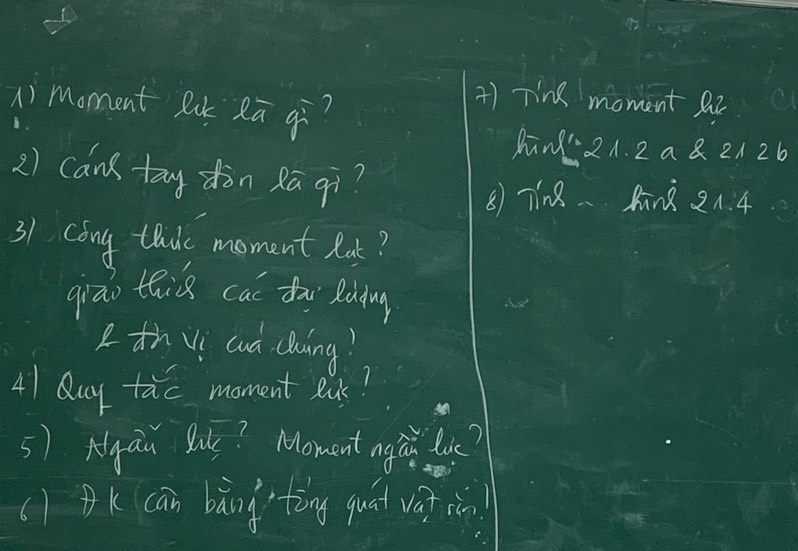 1) Moment lực là gì?
2) Cánh tay đòn là gì?
3) Công thức moment lực?
giải thích các đại lượng
& đơn vị của chúng?
4) Quy tắc moment lực?
5) Ngẫu lực? Moment ngẫu lực?
6) ĐK cân bằng tổng quát vật rắn?
7) Tính moment lực
hình 21.2 a & 21 2b
8) Tính ... hình 21.4